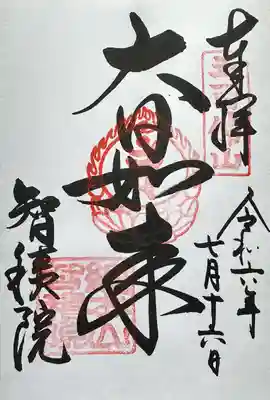 奉拝
令和六年
七月十六日
大日如来
智積院